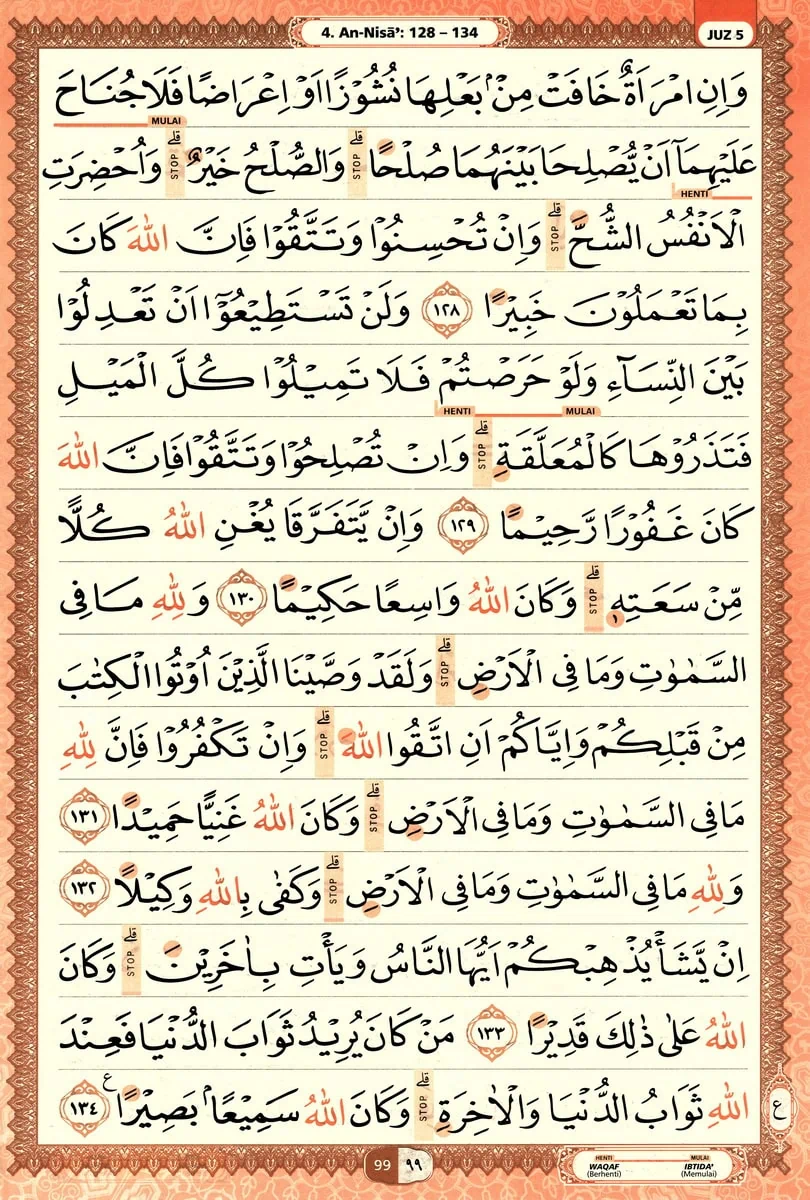 4. An-Nisā’: 128 – 134
JUZ 5
وَاِنِ امْرَاَةٌ خَافَتْ مِنْۢ بَعْلِهَا نُشُوْزًا اَوْ اِعْرَاضًا فَلَا جُنَاحَ
MULAI
عَلَيْهِمَآ اَنْ يُّصْلِحَا بَيْنَهُمَا صُلْحًا ۗ وَالصُّلْحُ خَيْرٌ ۗ وَاُحْضِرَتِ
قلے STOP قلے STOP
HENTI
الْاَنْفُسُ الشُّحَّ ۗ وَاِنْ تُحْسِنُوْا وَتَتَّقُوْا فَاِنَّ اللّٰهَ كَانَ
قلے STOP
بِمَا تَعْمَلُوْنَ خَبِيْرًا ١٢٨ وَلَنْ تَسْتَطِيْعُوْٓا اَنْ تَعْدِلُوْا
بَيْنَ النِّسَاۤءِ وَلَوْ حَرَصْتُمْ فَلَا تَمِيْلُوْا كُلَّ الْمَيْلِ
MULAI HENTI
فَتَذَرُوْهَا كَالْمُعَلَّقَةِ ۗ وَاِنْ تُصْلِحُوْا وَتَتَّقُوْا فَاِنَّ اللّٰهَ
قلے STOP
كَانَ غَفُوْرًا رَّحِيْمًا ١٢٩ وَاِنْ يَّتَفَرَّقَا يُغْنِ اللّٰهُ كُلًّا
مِّنْ سَعَتِهٖ ۗ وَكَانَ اللّٰهُ وَاسِعًا حَكِيْمًا ١٣٠ وَلِلّٰهِ مَا فِى
قلے STOP
السَّمٰوٰتِ وَمَا فِى الْاَرْضِ ۗ وَلَقَدْ وَصَّيْنَا الَّذِيْنَ اُوْتُوا الْكِتٰبَ
قلے STOP
مِنْ قَبْلِكُمْ وَاِيَّاكُمْ اَنِ اتَّقُوا اللّٰهَ ۗ وَاِنْ تَكْفُرُوْا فَاِنَّ لِلّٰهِ
قلے STOP
مَا فِى السَّمٰوٰتِ وَمَا فِى الْاَرْضِ ۗ وَكَانَ اللّٰهُ غَنِيًّا حَمِيْدًا ١٣١
قلے STOP
وَلِلّٰهِ مَا فِى السَّمٰوٰتِ وَمَا فِى الْاَرْضِ ۗ وَكَفٰى بِاللّٰهِ وَكِيْلًا ١٣٢
قلے STOP
اِنْ يَّشَأْ يُذْهِبْكُمْ اَيُّهَا النَّاسُ وَيَأْتِ بِاٰخَرِيْنَ ۗ وَكَانَ
قلے STOP
اللّٰهُ عَلٰى ذٰلِكَ قَدِيْرًا ١٣٣ مَنْ كَانَ يُرِيْدُ ثَوَابَ الدُّنْيَا فَعِنْدَ
اللّٰهِ ثَوَابُ الدُّنْيَا وَالْاٰخِرَةِ ۗ وَكَانَ اللّٰهُ سَمِيْعًاۢ بَصِيْرًا ࣖ ١٣٤
قلے STOP
ع
99 ٩٩
HENTI MULAI
WAQAF IBTIDA'
(Berhenti) (Memulai)